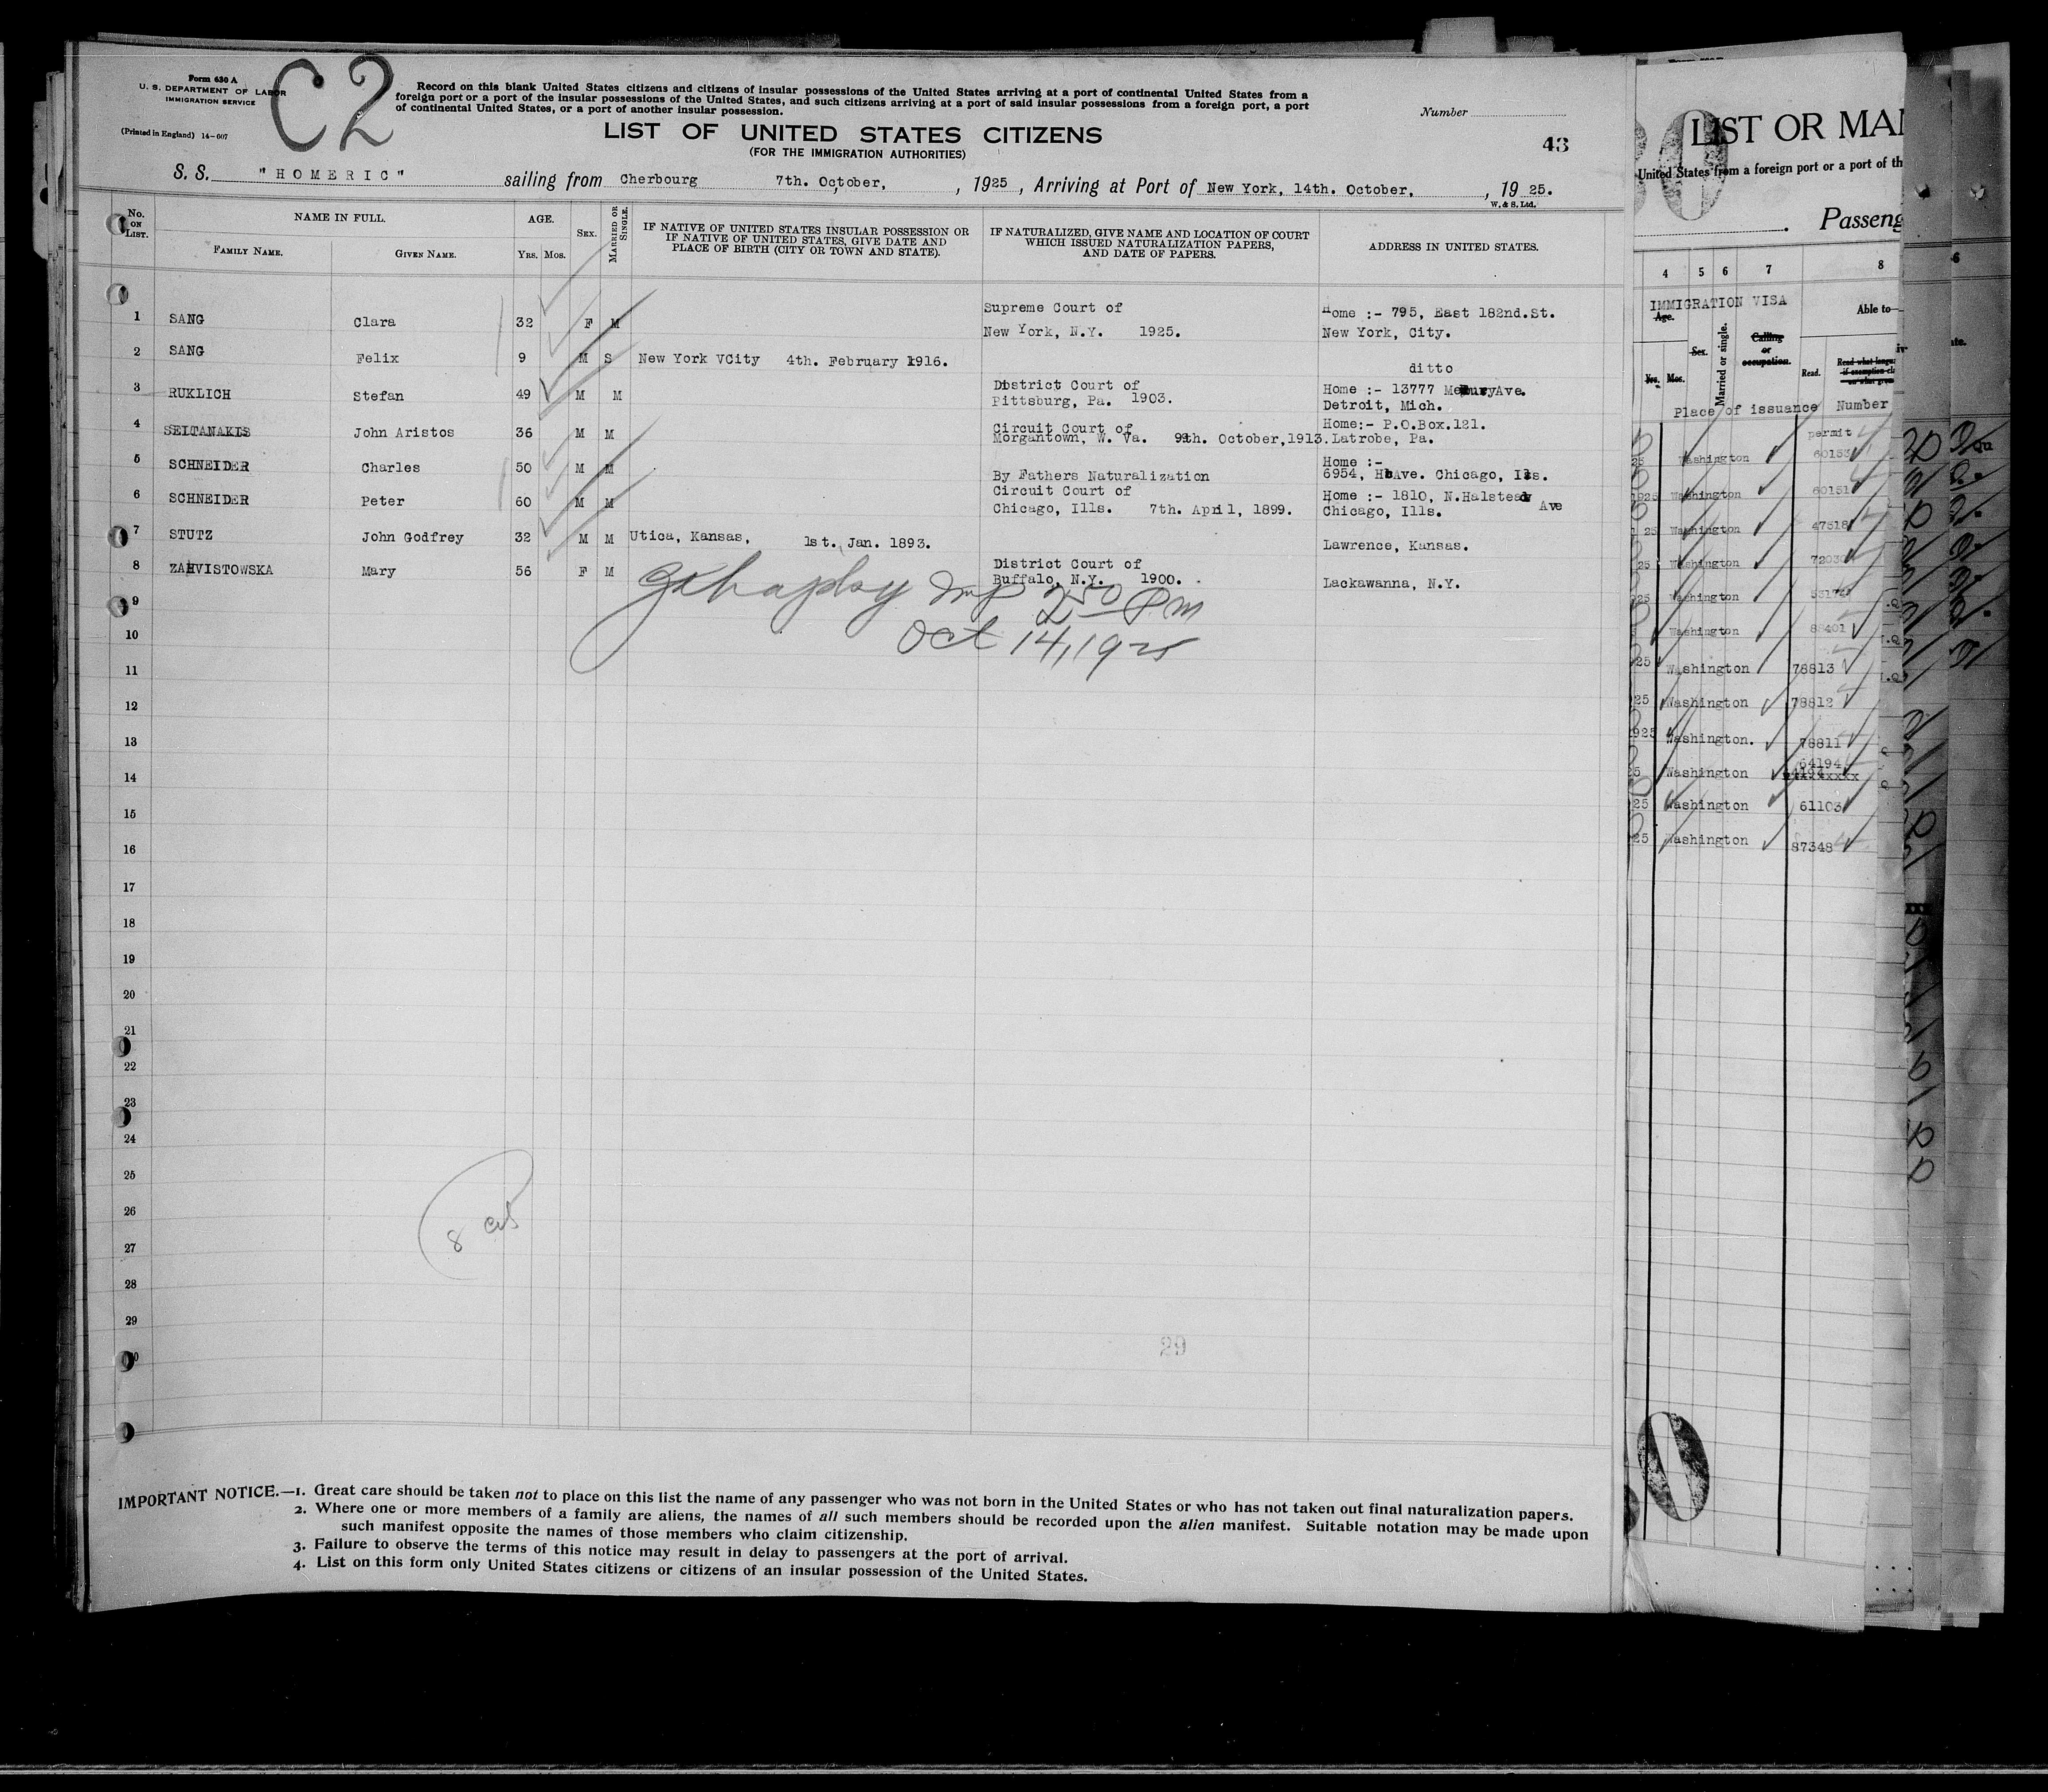 Form 630 A
U. S. DEPARTMENT OF LABOR
IMMIGRATION SERVICE
(Printed in England) 14-607
C2
Record on this blank United States citizens and citizens of insular possessions of the United States arriving at a port of continental United States from a
foreign port or a port of the insular possessions of the United States, and such citizens arriving at a port of said insular possessions from a foreign port, a port
of continental United States, or a port of another insular possession.
Number
LIST OF UNITED STATES CITIZENS
(FOR THE IMMIGRATION AUTHORITIES)
43
S. S. "HOMERIC" sailing from Cherbourg 7th. October, , 1925 , Arriving at Port of New York, 14th. October, , 19 25.
W. & S. Ltd.
No. ON LIST.
NAME IN FULL.
FAMILY NAME. GIVEN NAME.
AGE.
YRS. MOS.
SEX.
MARRIED OR SINGLE.
IF NATIVE OF UNITED STATES INSULAR POSSESSION OR
IF NATIVE OF UNITED STATES, GIVE DATE AND
PLACE OF BIRTH (CITY OR TOWN AND STATE).
IF NATURALIZED, GIVE NAME AND LOCATION OF COURT
WHICH ISSUED NATURALIZATION PAPERS,
AND DATE OF PAPERS.
ADDRESS IN UNITED STATES.
1 SANG Clara 32 F M Supreme Court of Home :- 795, East 182nd.St.
New York, N.Y. 1925. New York, City.
2 SANG Felix 9 M S New York VCity 4th. February 1916. ditto
3 RUKLICH Stefan 49 M M District Court of Home :- 13777 Ave.
Pittsburg, Pa. 1903. Detroit, Mich.
4 SEITANAKIS John Aristos 36 M M Circuit Court of Home:- P.O.Box.121.
Morgantown, W. Va. 9th. October,1913. Latrobe, Pa.
5 SCHNEIDER Charles 50 M M Home :-
By Fathers Naturalization 6954, Ave. Chicago, Ills.
6 SCHNEIDER Peter 60 M M Circuit Court of Home :- 1810, N.Halstead Ave
Chicago, Ills. 7th. April, 1899. Chicago, Ills.
7 STUTZ John Godfrey 32 M M Utica, Kansas, 1st. Jan. 1893. Lawrence, Kansas.
8 ZAHVISTOWSKA Mary 56 F M District Court of
Buffalo, N.Y. 1900. Lackawanna, N.Y.
9
2 50 P.M
10
Oct 14, 1925
11
12
13
14
15
16
17
18
19
20
21
22
23
24
25
26
8
27
28
29
29
IMPORTANT NOTICE.—1. Great care should be taken not to place on this list the name of any passenger who was not born in the United States or who has not taken out final naturalization papers.
2. Where one or more members of a family are aliens, the names of all such members should be recorded upon the alien manifest. Suitable notation may be made upon
such manifest opposite the names of those members who claim citizenship.
3. Failure to observe the terms of this notice may result in delay to passengers at the port of arrival.
4. List on this form only United States citizens or citizens of an insular possession of the United States.
LIST OR MAN
United States from a foreign port or a port of th
Passeng
4 5 6 7 8
IMMIGRATION VISA
Age. Able to
Sex. Married or single. Calling or occupation. Read.
Yrs. Mos.
Place of issuance Number
permit
Washington 60153
1925 Washington 60151
25 Washington 47518
25 Washington
25 Washington
Washington
25 Washington 78813
25 Washington 78812
1925 Washington. 78811
64194
Washington
25 Washington 61103
25 Washington 87348